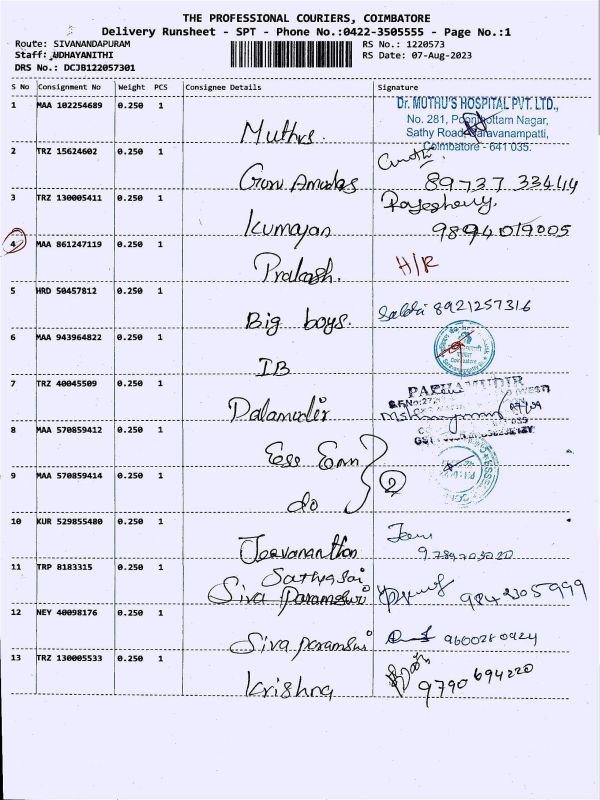 THE PROFESSIONAL COURIERS, COIMBATORE
Delivery Runsheet - SPT - Phone No.:0422-3505555 - Page No.:1
Route: SIVANANDAPURAM RS No.: 1220573
Staff: UDHAYANITHI RS Date: 07-Aug-2023
DRS No.: DCJB122057301
S No Consignment No Weight PCS Consignee Details Signature
1 MAA 102254689 0.250 1 Muthus. Dr. MUTHU'S HOSPITAL PVT. LTD.,
No. 281, Poonthottam Nagar,
Sathy Road, Saravanampatti,
Coimbatore - 641 035.
2 TRZ 15624602 0.250 1 Grow 89737 33414
3 TRZ 130005411 0.250 1 Kumaran Rajeshwary. 9894019005
4 MAA 861247119 0.250 1 Prakash. H/R
5 HRD 50457812 0.250 1 Big boys. 8921257316
6 MAA 943964822 0.250 1 IB
7 TRZ 40045509 0.250 1 Palamudir
8 MAA 570859412 0.250 1 Ess Enn
9 MAA 570859414 0.250 1 do 2
10 KUR 529855480 0.250 1 Jeevananthan 9789703020
11 TRP 8183315 0.250 1 Sathya Sai
Siva Parameswri 9842305999
12 NEY 40098176 0.250 1 Siva Paramswi 9600280924
13 TRZ 130005533 0.250 1 Krishna 9790694220